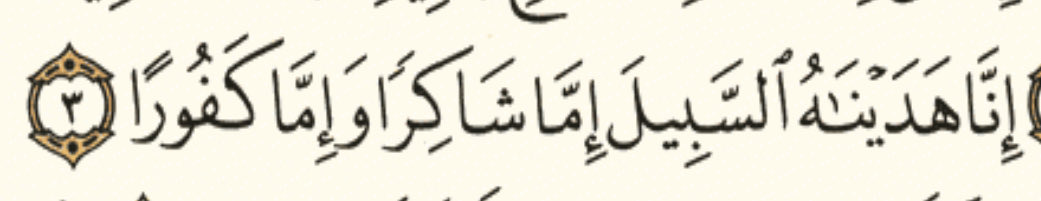 إِنَّا هَدَيْنَٰهُ ٱلسَّبِيلَ إِمَّا شَاكِرًا وَإِمَّا كَفُورًا ٣